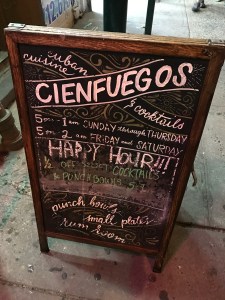 urban
cuisine
CIENFUEGOS
& cocktails
5pm - 1am SUNDAY through THURSDAY
5pm - 2am FRIDAY and SATURDAY
HAPPY HOUR!!!
1/2 OFF SELECT COCKTAILS
& PUNCH BOWLS
punch bowls
small plates
rum room